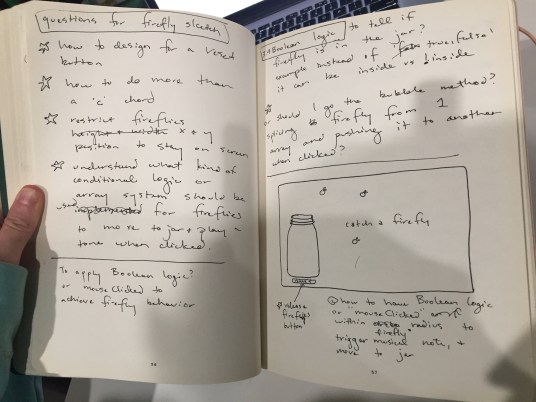 questions for firefly sketch
how to design for a reset
button
how to do more than
a 'c' chord
restrict fireflies
height + width x + y
position to stay on screen
understand what kind of
conditional logic or
array system should be
used implemented for fireflies
to move to jar + play
tone when clicked.
To apply Boolean logic?
or mouse clicked to
achieve firefly behavior
36
Boolean logic to tell if
firefly is in the jar?
example instead of true, false,
it can be inside vs !inside
or should I go the bubble method?
splicing firefly from 1
array and pushing it to another
when clicked?
catch a firefly
release
fireflies
button
how to have Boolean logic
or "mouse clicked" on/f
within radius to
firefly
trigger musical note, +
move to jar
37